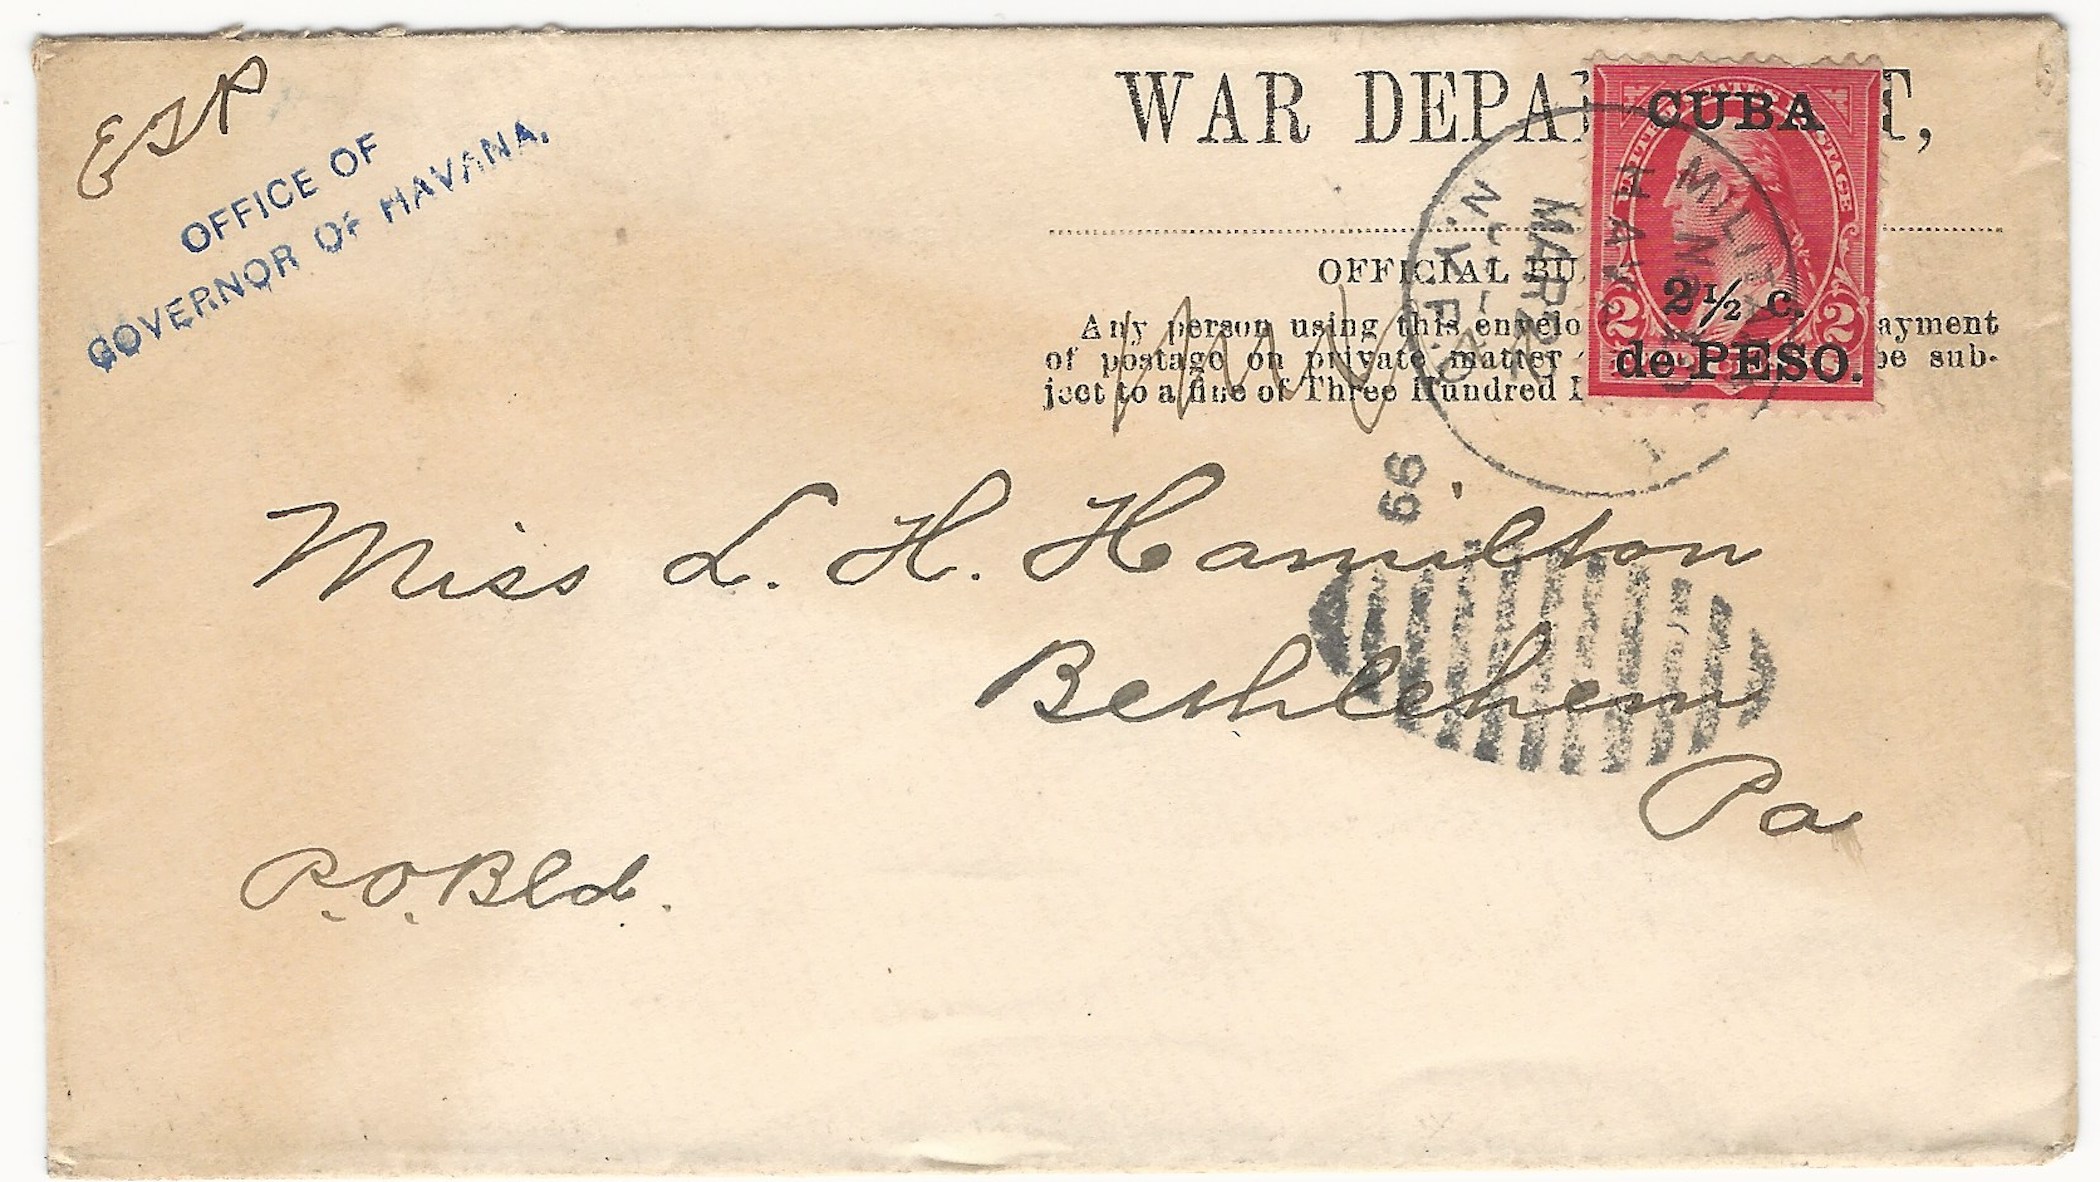 OFFICE OF
GOVERNOR OF HAVANA.
WAR DEPA T,
OFFICIAL BU
Any person using this envelo ayment
of postage on private matter be sub-
ject to a fine of Three Hundred
CUBA
UNITED STATES POSTAGE
2½ c.
de PESO.
2 2
MAR 2
99
Miss L. H. Hamilton
Bethlehem
Pa
P.O. Bld.